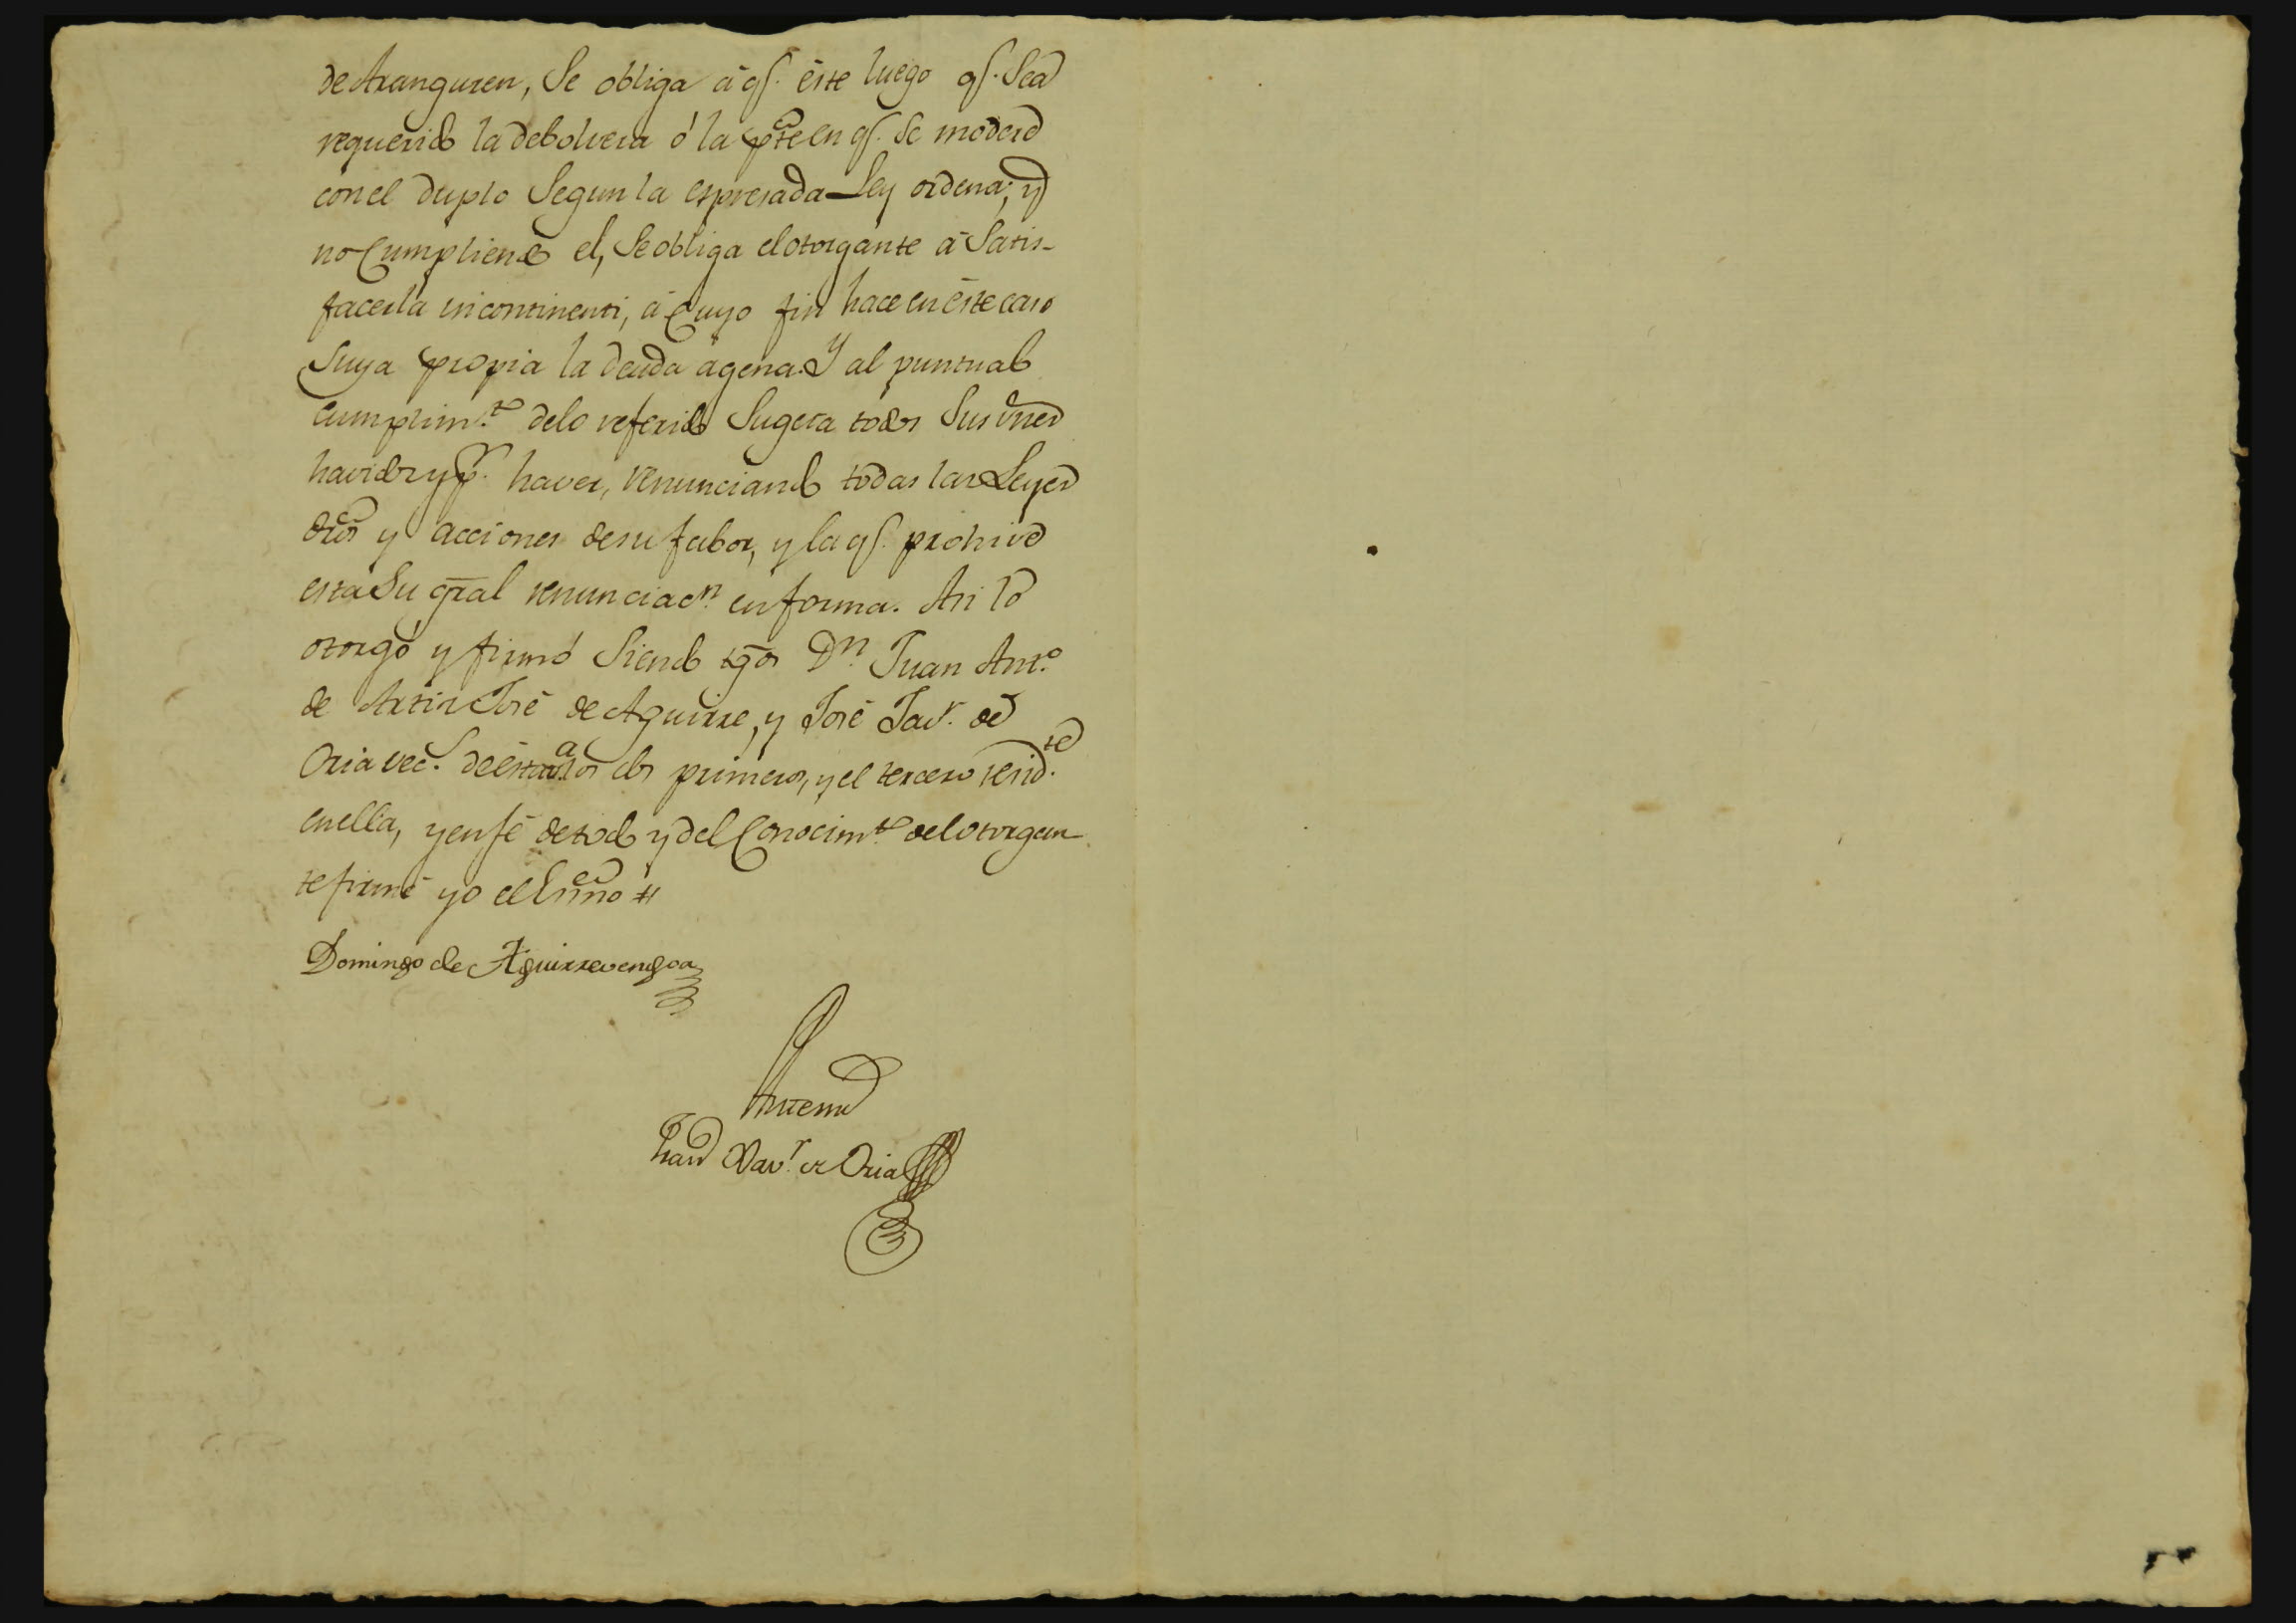 de Aranguren, Se obliga á qe. éste luego qe. Sea
requerido la debolvera ó la pte en qe. Se modere
con el duplo Segun la espresada Ley ordena; y
no Cumpliendo el, Se obliga el otorgante á Satis-
facerla incontinenti, á Cuyo fin hace en éste caso
Suya propia la deuda agena. Y al puntual
cumplimto. delo referido Sugeta todos Sus vnes
havidos y pr. haver, renunciando todas las Leyes
dros y acciones de su fabor, y la qe. prohive
esta Su gral renunciacn. en forma. Asi lo
otorgó y firmó Siendo tgos Dn. Juan Anto.
de José de Aguirre, y José Javr. de
Oria vecs. de esta va. los dos primeros, y el tercero residte.
en ella, y en fé de todo y del Conocimto. del otorgan
te firmé yo el Essno #
Domingo de Aguirrevengoa
Antemi
Xavr. de Oria